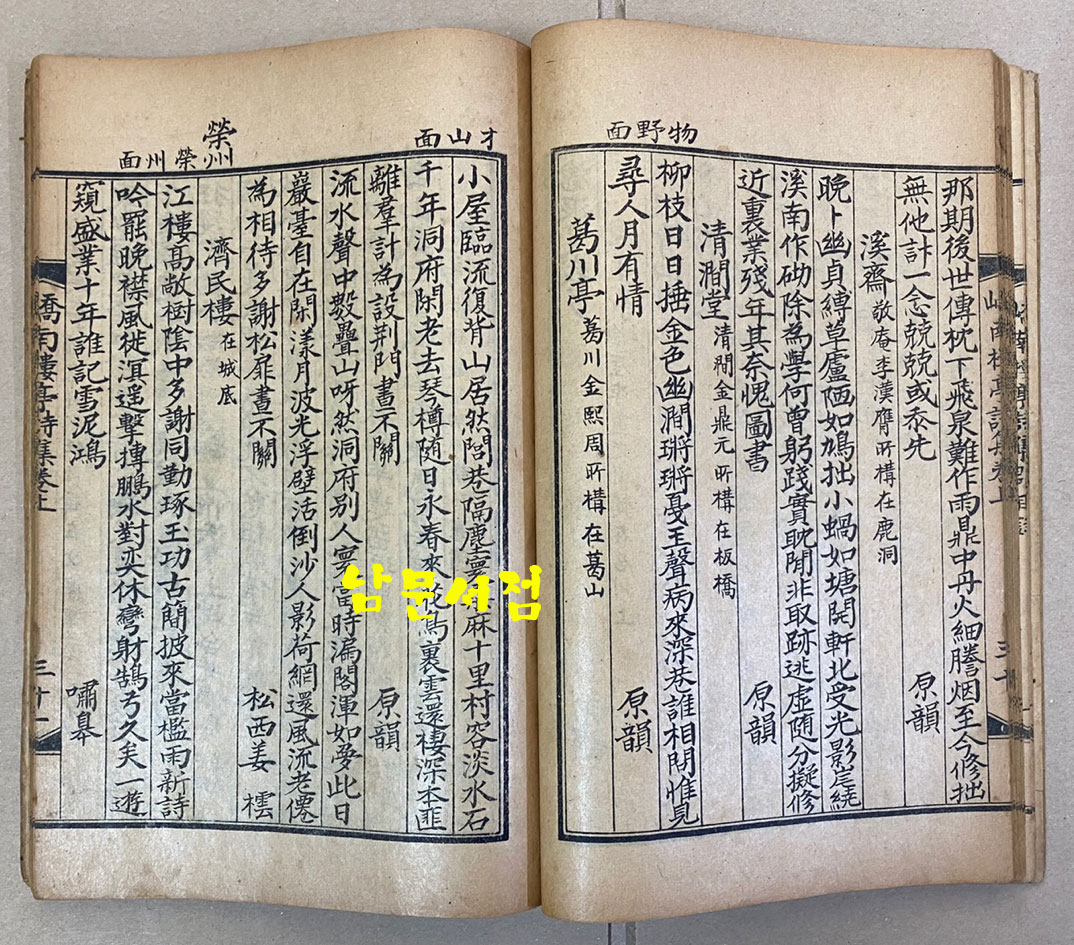 物野面
那期後世傳枕下飛泉難作雨鼎中丹火細謄烟至今修拙
無他計一念兢兢或忝先
原韻
溪齋 敬庵李漢膺所構在鹿洞
晩卜幽貞縛草廬陋如鳩拙小蝸如塘開軒北受光影崑繞
溪南作砌除為學何曾躬踐實耽閒非取跡逃虛随分擬修
近裏業殘年其奈愧圖書
原韻
清澗堂 清澗金鼎元所構在板橋
柳枝日日捶金色幽澗琳琳戞玉聲病來深巷誰相問惟見
尋人月有情
原韻
葛川亭 葛川金熙周所構在葛山
才山面
小屋臨流復背山居然閭巷隔塵寰 麻十里村容淡水石
千年洞府閑老去琴樽随日永春來花鳥裏雲還棲深本匪
離羣計為設荆門晝不關
原韻
流水聲中數疊山呀然洞府別人寰當時漏閣渾如夢此日
巖臺自在閑漾月波光浮壁活倒沙人影荷網還風流老僊
為相待多謝松扉晝不關
松西姜橒
榮州
榮州面
濟民樓 在城底
江樓高敞樹陰中多謝同勤琢玉功古簡披來當檻雨新詩
吟罷晩襟風徙溟遥擊摶鵬水對奕休彎射鵠弓久矣一遊
窺盛業十年誰記雪泥鴻
嘯皐
嶠南樓亭詩集卷上
三十一
남문서점